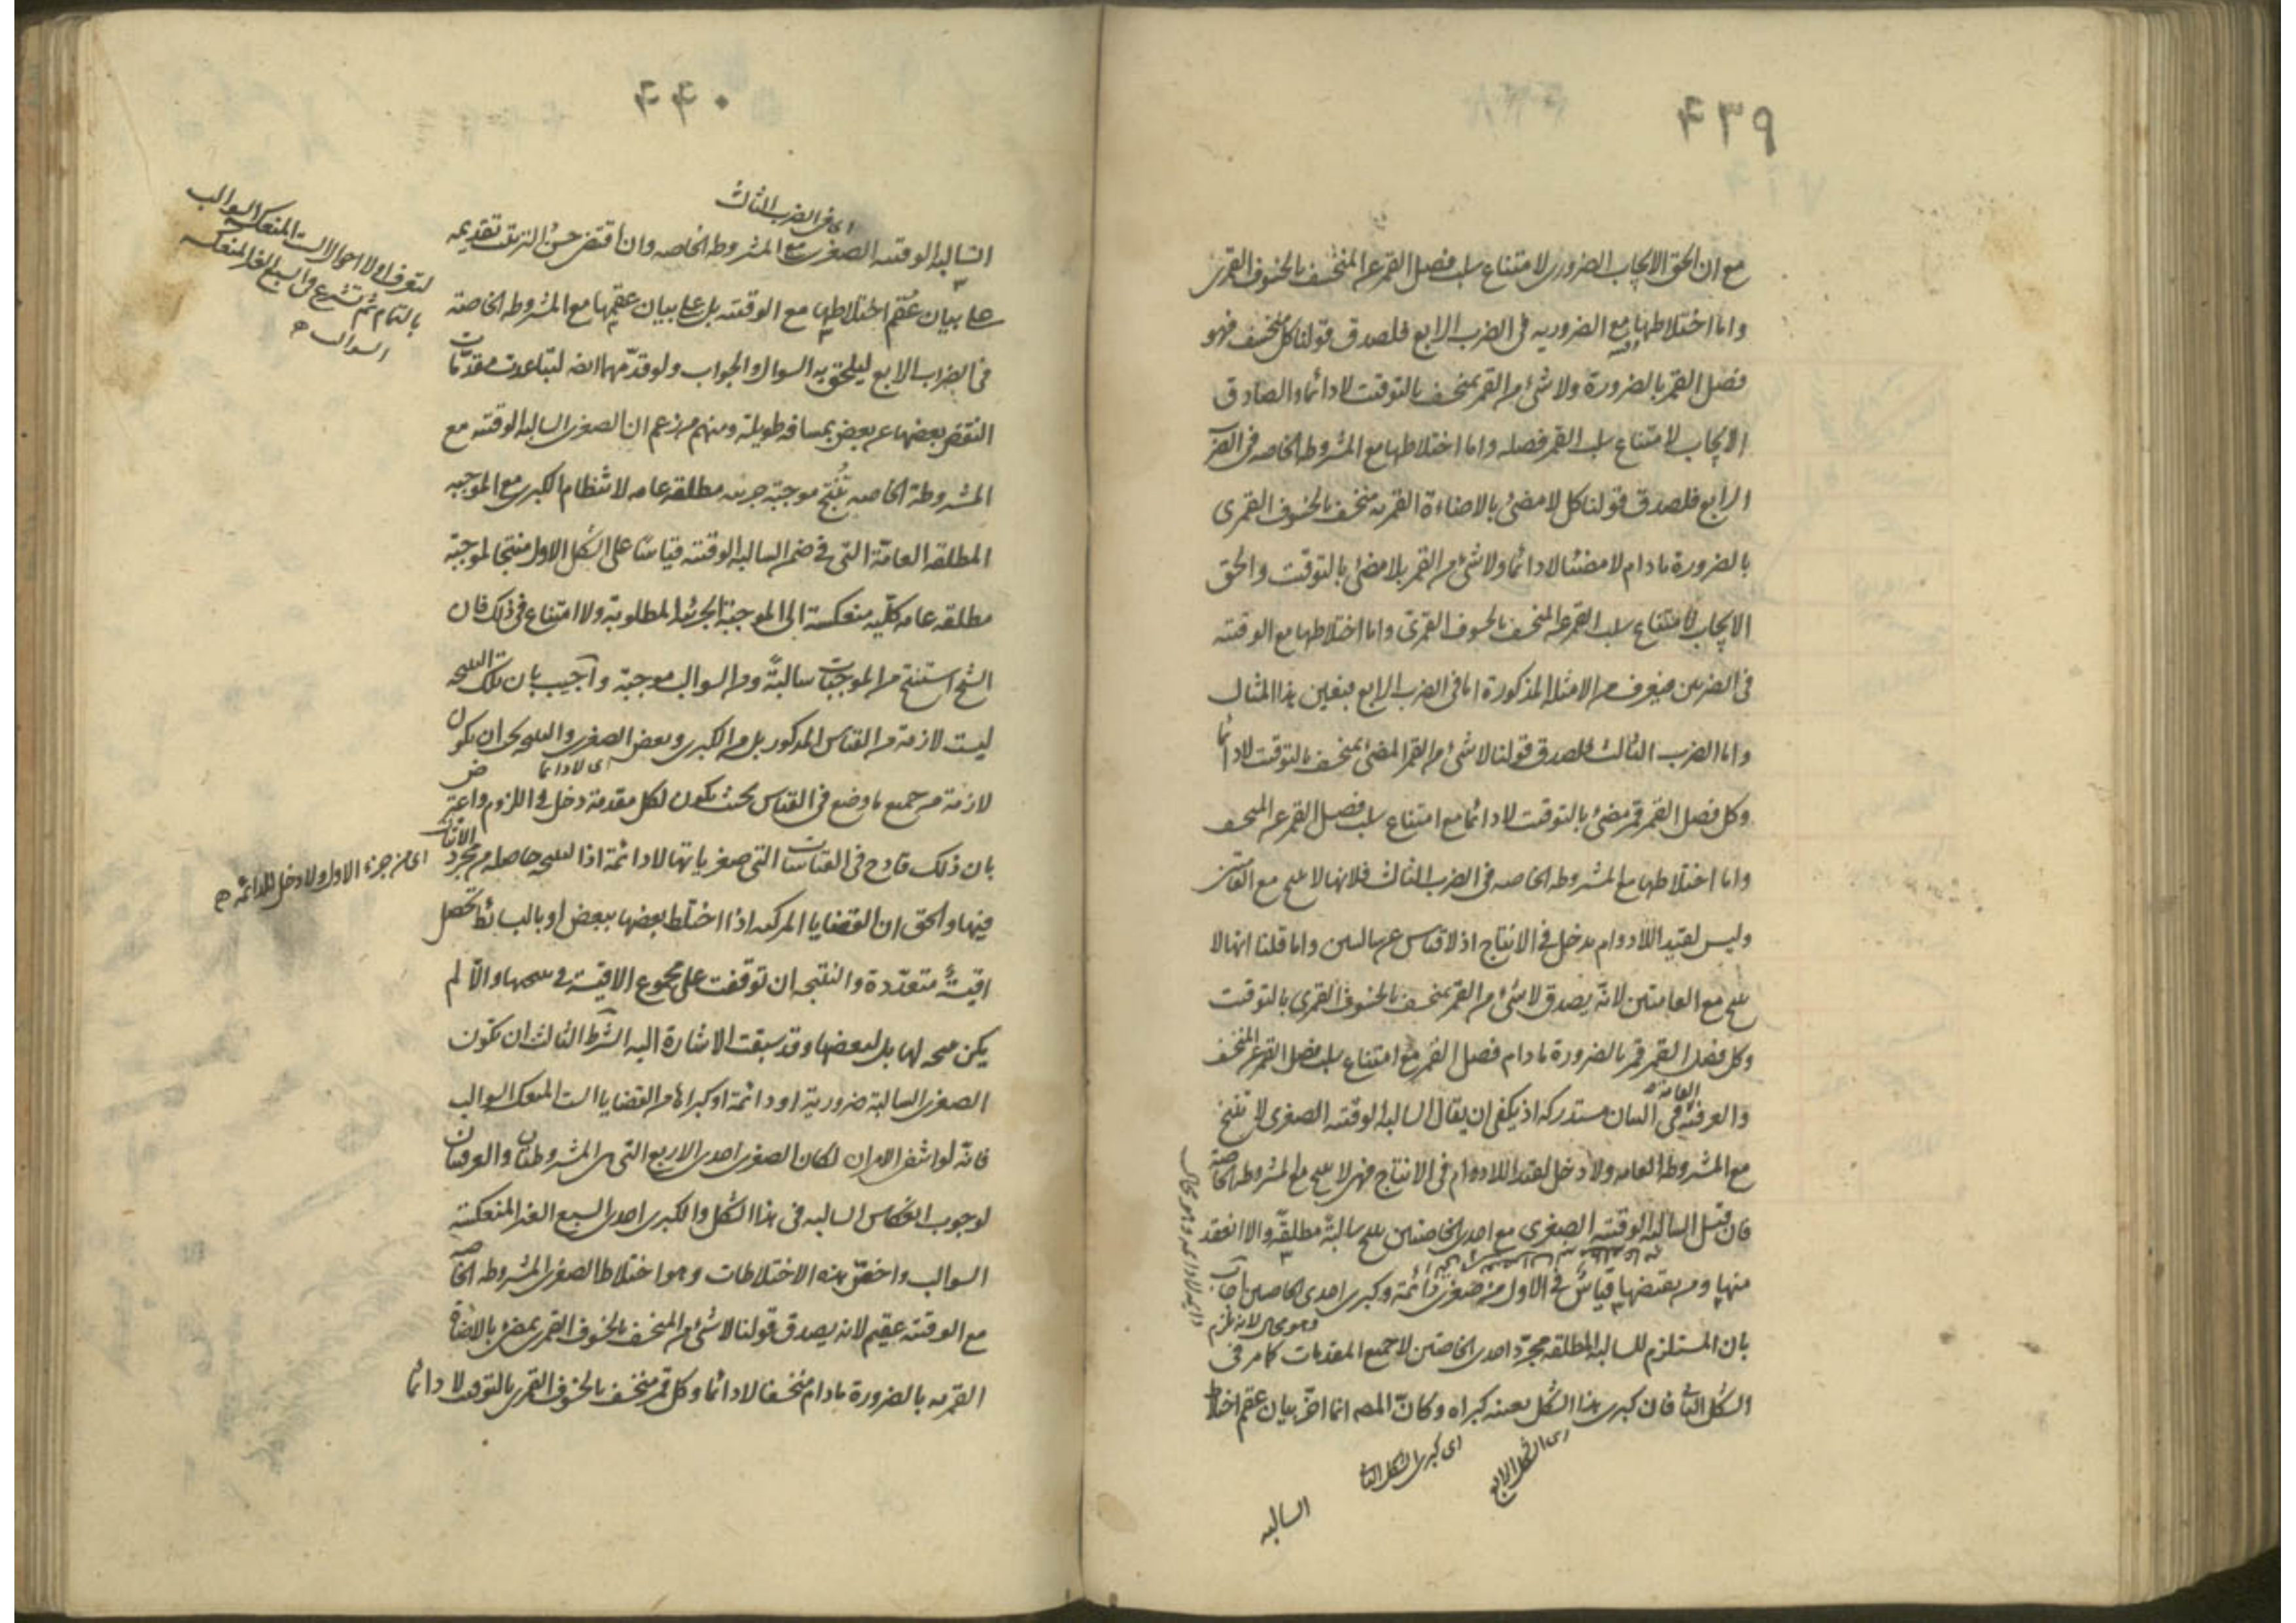 ٤٣٩
مع ان الحق الايجاب الضروري لامتناع سلب فصل القمر عن المنخسف بالخسوف القمري
واما اختلاطها مع الضروريه في الضرب الرابع فلصدق قولنا كل منخسف فهو
فصل القمر بالضرورة ولا شئ من القمر بمنخسف بالتوقيت لا دائما والصادق
الايجاب لامتناع سلب القمر فصله واما اختلاطها مع المشروطه الخاصه في الضرب
الرابع فلصدق قولنا كل لا مضئ بالاضاءة القمريه منخسف بالخسوف القمري
بالضرورة مادام لا مضئا لا دائما ولا شئ من القمر بلا مضئ بالتوقيت والحق
الايجاب لامتناع سلب القمر عن المنخسف بالخسوف القمري واما اختلاطها مع الوقتيه
في الضربين فيعرف من الامثله المذكورة اما في الضرب الرابع فبعين هذا المثال
واما الضرب الثالث فلصدق قولنا لا شئ من القمر المضئ بمنخسف بالتوقيت لا دائما
وكل فصل القمر قمر مضئ بالتوقيت لا دائما مع امتناع سلب فصل القمر عن المنخسف
واما اختلاطها مع المشروطه الخاصه في الضرب الثالث فلانها لا ينتج مع العامتين
وليس لقيد اللادوام مدخل في الانتاج اذ لا قياس عن سالبتين واما قلنا انها لا
ينتج مع العامتين لانه يصدق لا شئ من القمر بمنخسف بالخسوف القمري بالتوقيت
وكل فصل القمر قمر بالضرورة مادام فصل القمر مع امتناع سلب فصل القمر عن المنخسف
العامة
والعرفيه في البيان مستدركه اذ يكفي ان يقال السالبه الوقتيه الصغرى لا تنتج
مع المشروطه العامه ولا دخل لقيد اللادوام في الانتاج فهي لا ينتج مع المشروطه الخاصة
فان قيل السالبه الوقتيه الصغرى مع احدى الخاصتين ينتج سالبة مطلقة والا انعقد
منها ومن نقيضها قياس في الاول من صغرى دائمة وكبرى احدى الخاصتين اجاب
وهو محال لانه يلزم
بان المستلزم للسالبه المطلقه مجرد احدى الخاصتين لا جميع المقدمات كما مر في
الشكل الثاني فان كبرى هذا الشكل بعينه كبراه وكان المصه انما اخر بيان عقم اختلاط
اى الشكل الرابع
اى كبرى الشكل الثاني
السالبه
٤٤٠
اى في الضرب الثالث
السالبه الوقتيه الصغرى مع المشروطه الخاصه وان اقتضى حسن الترتيب تقديمه
على بيان عقم اختلاطها مع الوقتيه بل على بيان عقمها مع المشروطه الخاصة
في الضرب الرابع ليلحق به السوال والجواب ولو قدمهما ايضه لتباعدت مقدمات
النقض بعضها عن بعض بمسافه طويلة ومنهم من زعم ان الصغرى السالبه الوقتيه مع
المشروطة الخاصه تنتج موجبة جزئيه مطلقه عامه لانتظام الكبرى مع الموجبه
المطلقه العامة التي في ضمن السالبه الوقتيه قياسا على الشكل الاول منتجا لموجبة
مطلقه عامه كلية منعكسة الى الموجبة الجزئيه المطلوبة ولا امتناع في ذلك فان
الشيخ استنتج من الموجبات سالبة ومن السوالب موجبة واجيب بان تلك النتيجه
ليست لازمة من القياس المذكور بل من الكبرى وبعض الصغرى والنتيجه يجب ان يكون
اى لا دائما
لازمة من جميع ما وضع في القياس بحيث يكون لكل مقدمة دخل في اللزوم واعترض
بان ذلك قادح في القياسات التي صغرياتها لا دائمة اذ النتيجه حاصله من مجرد الاثبات
اى من جزء الاول ولا دخل للا دائمه
فيها والحق ان القضايا المركبه اذا اختلط بعضها ببعض او بالبسائط تحصل
اقيسة متعددة والنتيجه ان توقفت على مجموع الاقيسة فهي نتيجتها والا لم
يكن نتيجه لها بل لبعضها وقد سبقت الاشارة اليه الشرط الثالث ان تكون
الصغرى السالبة ضرورية او دائمة او كبراه من القضايا الست المنعكسة السوالب
فانه لو انتفى الامران لكان الصغرى احدى الاربع التي هي المشروطتان والعرفيتان
لوجوب انعكاس السالبه في هذا الشكل والكبرى احدى السبع الغير المنعكسة
السوالب واخص هذه الاختلاطات وهو اختلاط الصغرى المشروطه الخاصه
مع الوقتيه عقيم لانه يصدق قولنا لا شئ من المنخسف بالخسوف القمري بمضئ بالاضاءة
القمريه بالضرورة مادام منخسفا لا دائما وكل قمر منخسف بالخسوف القمري بالتوقيت لا دائما
لتعرف اولا احوال الست المنعكسه السوالب
بالتمام ثم تشرع في السبع الغير المنعكسه
السوالب